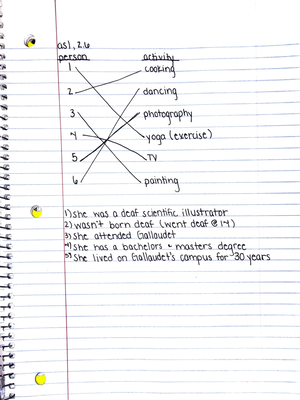 asl, 2.6
person activity
1 cooking
2 dancing
3 photography
4 yoga (exercise)
5 TV
6 painting
1) she was a deaf scientific illustrator
2) wasn't born deaf (went deaf @ 14)
3) she attended Gallaudet
4) she has a bachelors + masters degree
5) She lived on Gallaudet's campus for 30 years